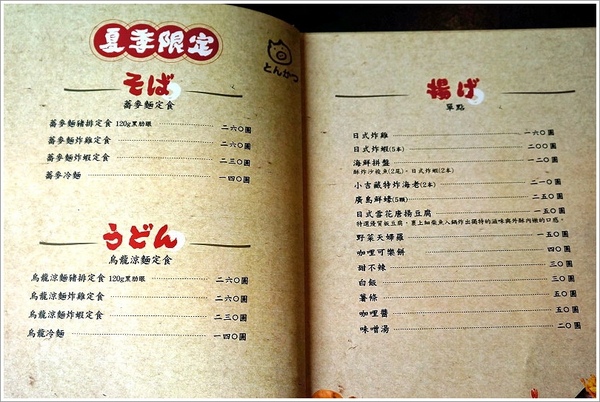 夏季限定
とんかつ
そば
蕎麥麵定食
蕎麥麵豬排定食 120g里肌眼 二六〇圓
蕎麥麵炸雞定食 二六〇圓
蕎麥麵炸蝦定食 二三〇圓
蕎麥冷麵 一四〇圓
うどん
烏龍涼麵定食
烏龍涼麵豬排定食 120g里肌眼 二六〇圓
烏龍涼麵炸雞定食 二六〇圓
烏龍涼麵炸蝦定食 二三〇圓
烏龍冷麵 一四〇圓
揚げ
單點
日式炸雞 一六〇圓
日式炸蝦(5本) 二〇〇圓
海鮮拼盤 一二〇圓
酥炸沙梭魚(2尾)、日式炸蝦(2本)
小吉藏特炸海老(2本) 二一〇圓
廣島鮮蠔(5顆) 二五〇圓
日式雪花唐揚豆腐 一五〇圓
特選淺質板豆腐，裹上細柴魚入鍋炸出獨特的滋味與外酥內嫩的口感。
野菜天婦羅 一五〇圓
咖哩可樂餅 四〇圓
甜不辣 三〇圓
白飯 三〇圓
薯條 五〇圓
咖哩醬 五〇圓
味噌湯 二〇圓